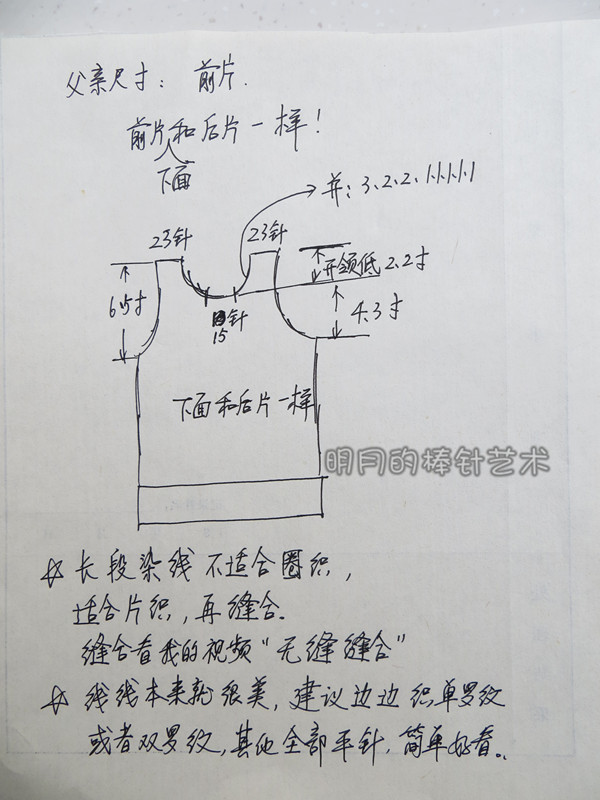 父亲尺寸：前片.
前片和后片一样！
人
下面
并：3、2、2、1.1.1.1.1
23针
23针
开领低2.2寸
6.5寸
4.3寸
15针
下面和后片一样
明月的棒针艺术
☆ 长段染线不适合圈织，
适合片织，再缝合.
缝合看我的视频“无缝缝合”
☆ 线线本来就很美，建议边边织单罗纹
或者双罗纹，其他全部平针，简单好看..